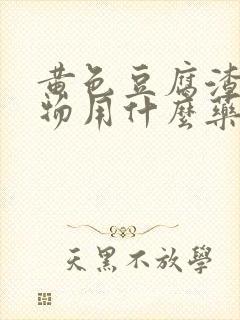 黄色豆腐渣
物用什麼藥
天黑不放學